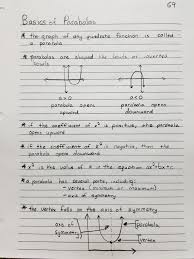 69
Basics of Parabolas
* the graph of any quadratic function is called
a parabola
* parabolas are shaped like bowls or inverted
bowls
a>0
a<0
parabola opens
upward
parabola opens
downward
* if the coefficient of x² is positive, the parabola
opens upward
* if the coefficient of x² is negative, then the
parabola opens downward
* the value of x² is the a in the equation ax²+bx+c
* a parabola has several parts, including:
- vertex (minimum or maximum)
- axis of symmetry
* the vertex falls on the axis of symmetry
axis of
symmetry
parabola
vertex